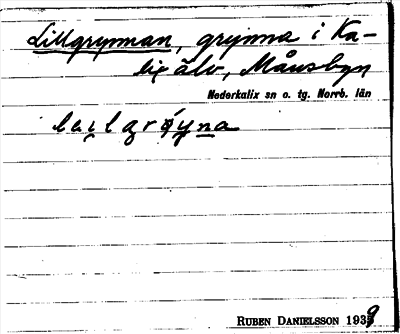 Lillgrynnan, grynna i Ka-
lix älv, Månsbyn
Nederkalix sn o. tg. Norrb. län
RUBEN DANIELSSON 1939